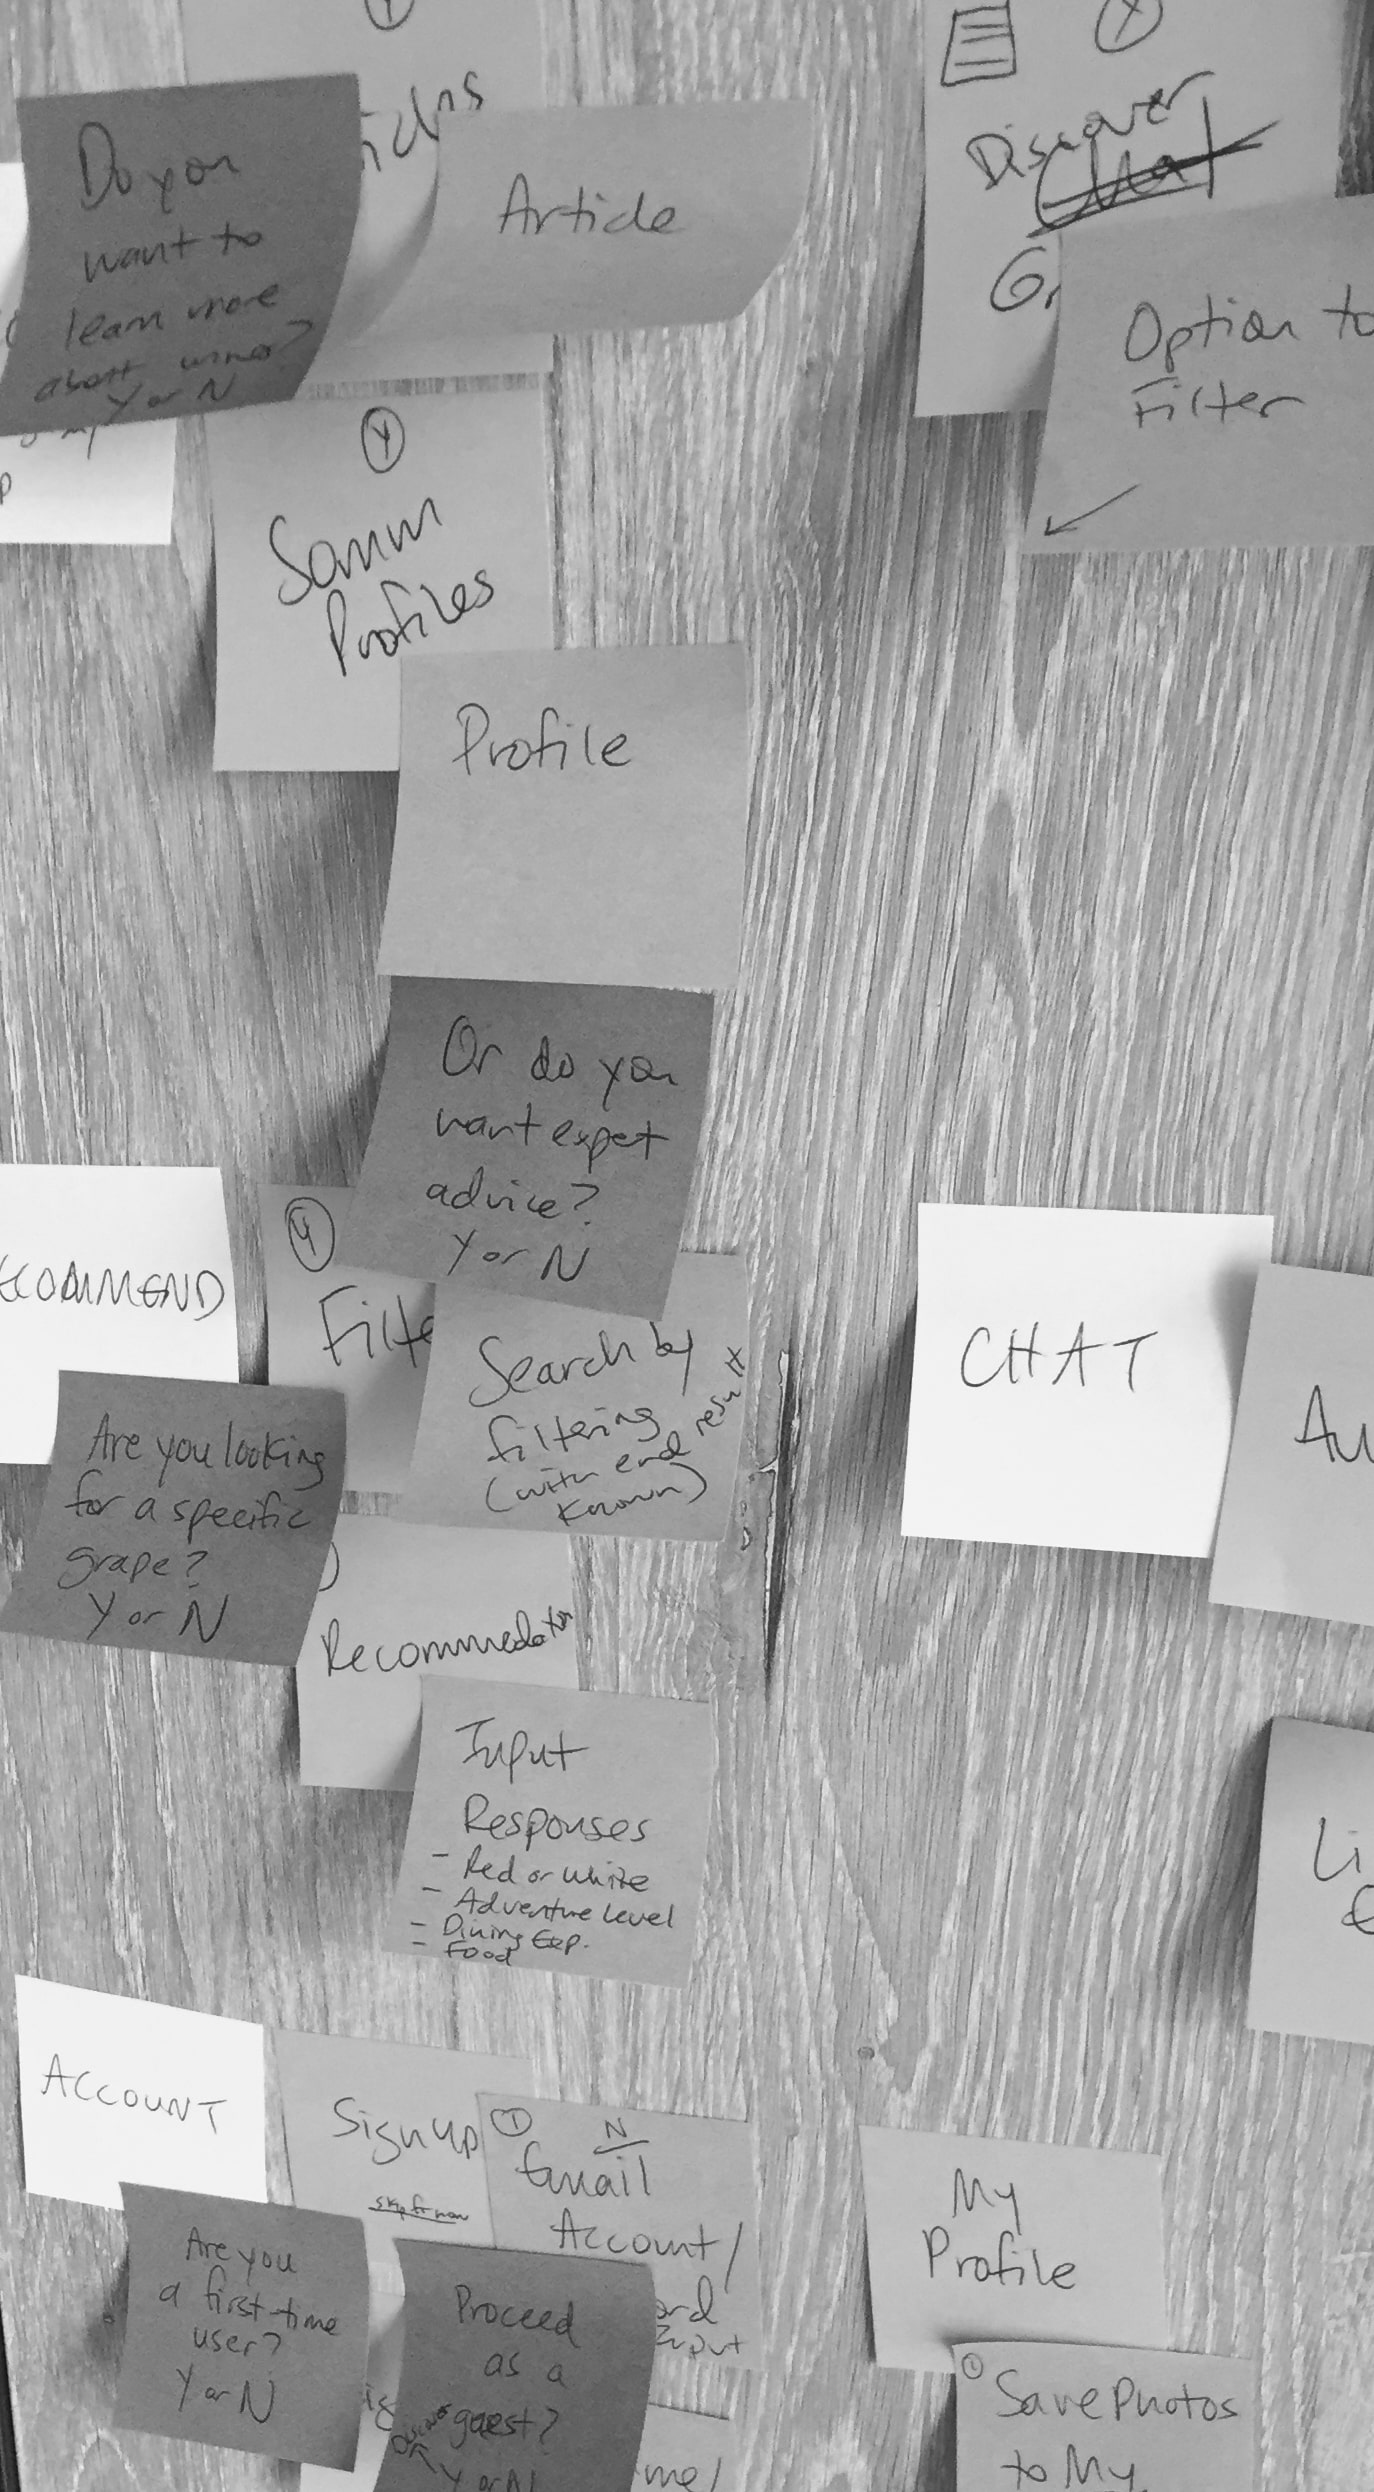 Do you
want to
learn more
about wines?
Y or N
Article
Discover
Option to
Filter
Y
Somm
Profiles
Profile
Or do you
want expet
advice?
Y or N
ECOMMEND
Y
Filte
Search by
filtering
(with end result
known)
Are you looking
for a specific
grape?
Y or N
Recommedation
Input
Responses
- Red or White
- Adventure Level
- Dining Exp.
- Food
CHAT
Au
Li
ACCOUNT
Sign up
skip fr now
1
N
Email
Account/
ord
Input
Are you
a first-time
user?
Y or N
Proceed
as a
guest?
Y or N
me/
My
Profile
1
Save Photos
to My